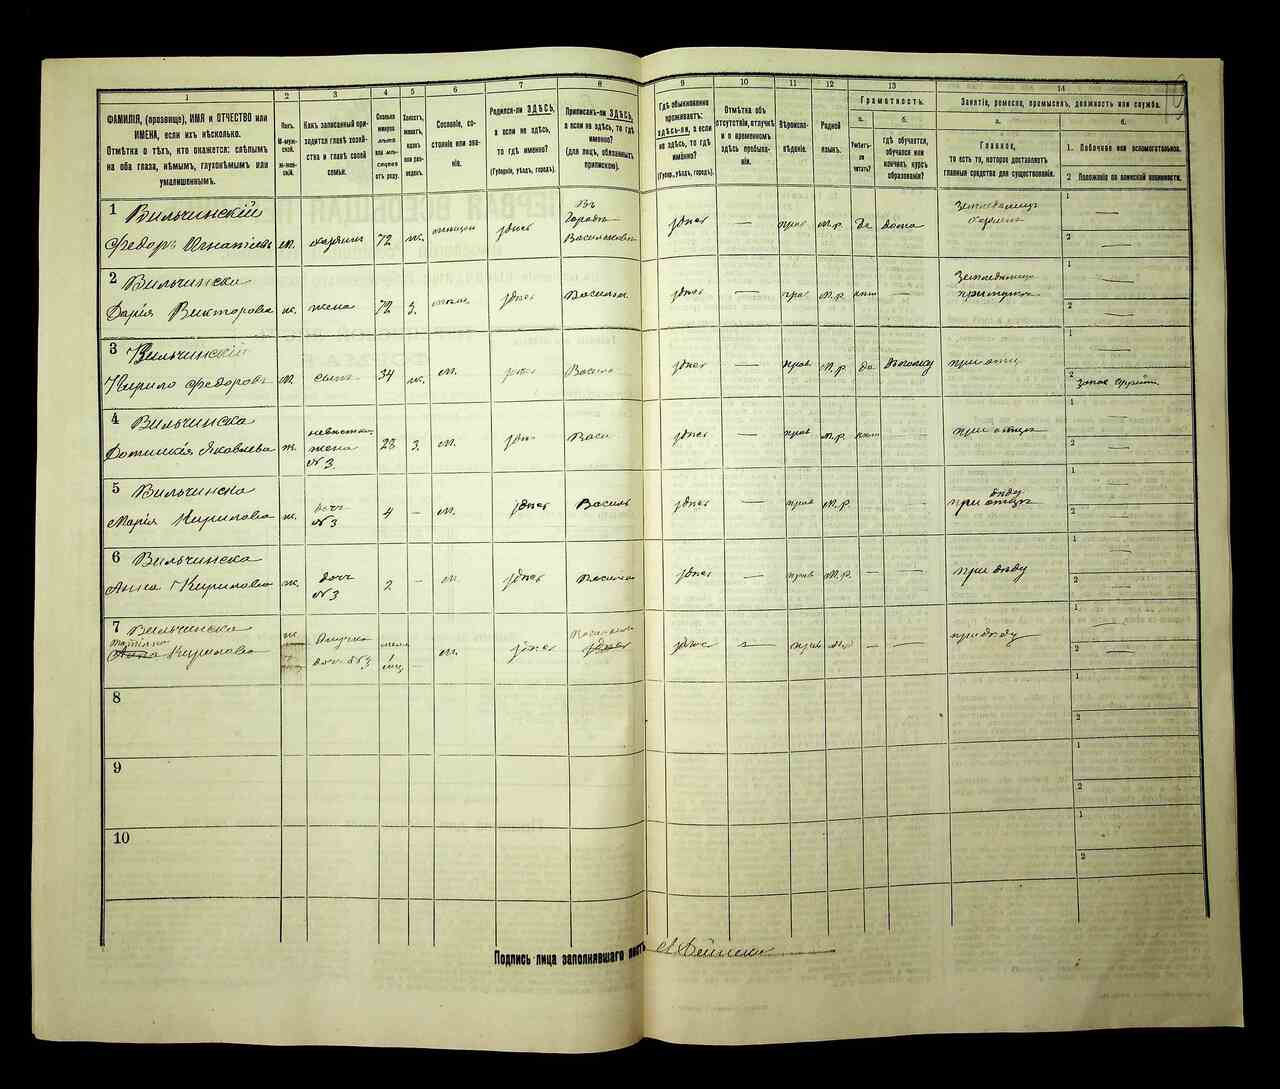 1 2 3 4 5 6 7 8 9 10 11 12 13 14
ФАМИЛІЯ, (прозвище), ИМЯ и ОТЧЕСТВО или
ИМЕНА, если ихъ нѣсколько.
Отмѣтка о тѣхъ, кто окажется: слѣпымъ
на оба глаза, нѣмымъ, глухонѣмымъ или
умалишеннымъ.
Полъ.
М-муж-
ской.
Ж-жен-
скій.
Какъ записанный при-
ходится главѣ хозяй-
ства и главѣ своей
семьи.
Сколько
минуло
лѣтъ
или мѣ-
сяцевъ
отъ роду.
Холостъ,
женатъ,
вдовъ
или раз-
веденъ.
Сословіе, со-
стояніе или зва-
ніе.
Родился-ли ЗДѢСЬ,
а если не здѣсь,
то гдѣ именно?
(Губернія, уѣздъ, городъ).
Приписанъ-ли ЗДѢСЬ,
а если не здѣсь, то гдѣ
именно?
(для лицъ, обязанныхъ
припискою).
Гдѣ обыкновенно
проживаетъ:
здѣсь-ли, а если
не здѣсь, то гдѣ
именно?
(Губер., уѣздъ, городъ).
Отмѣтка объ
отсутствіи, отлучкѣ
и о временномъ
здѣсь пребыва-
ніи.
Вѣроиспо-
вѣданіе.
Родной
языкъ.
Грамотность.
а.
Умѣетъ-
ли
читать?
б.
гдѣ обучается,
обучался или
кончилъ курсъ
образованія?
Занятіе, ремесло, промыселъ, должность или служба.
а.
Главное,
то есть то, которое доставляетъ
главныя средства для существованія.
б.
1. Побочное или вспомогательное.
2 Положеніе по воинской повинности.
1 Вильчинскій
Федоръ Игнатіевъ м. хозяинъ 72 ж. здѣсь
Въ
Городѣ
Васильковѣ
здѣсь — прав М.р. да дома
Земледѣлецъ
хозяинъ
1 —
2 —
2 Вильчинска
Дарія Викторова ж. жена 72 з. здѣсь здѣсь — прав М.р. нѣт —
Земледѣлец
при мужѣ
1 —
2 —
3 Вильчинскій
Кирило Федоровъ м. сынъ 34 ж. м. здѣсь здѣсь — прав М.р. да при отцѣ
1 —
2
4 Вильчинска
Яковлева ж.
невѣстка,
жена
№ 3.
28 з. м. здѣсь Васи здѣсь — прав М.р. нѣт — при отцѣ
1 —
2 —
5 Вильчинска
Марія Кирилова ж.
дочь
№ 3
4 — м. здѣсь Василь здѣсь — прав М.р. — —
при дѣду
1 —
2 —
6 Вильчинска
Анна Кирилова ж.
дочь
№ 3
2 — м. здѣсь здѣсь — прав М.р. — — при дѣду
1 —
2 —
7 Вильчинска
Кирилова
дочь №3
м. здѣсь здѣсь прав М.р. — — при дѣду
1 —
2 —
8
1
2
9
1
2
10
1
2
Подпись лица заполнявшаго листъ